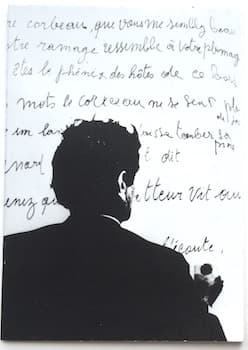 corbeau, que vous me semblez beau
tre ramage ressemble à votre plumag
êtes le phénix des hôtes de ce bois
mots le corbeau ne se sent
un la laisse tomber sa
proie
dit
enez qu tteur vit
l'écoute.